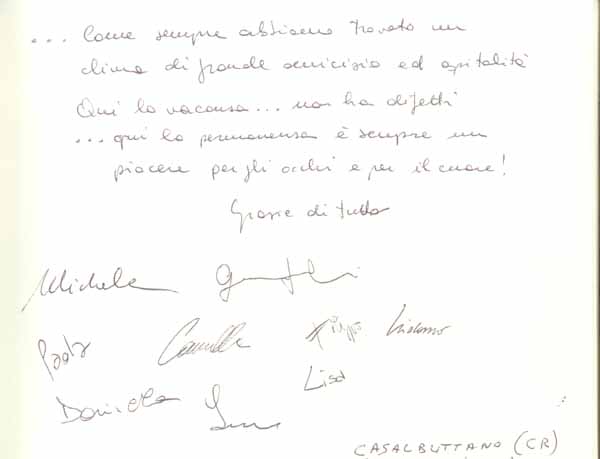 ... Come sempre abbiamo trovato un
clima di grande amicizia ed ospitalità
Qui la vacanza... non ha difetti
... qui la permanenza è sempre un
piacere per gli occhi e per il cuore!
Grazie di tutto
Michela
Paola Camilla
Lisa
Daniela
CASALBUTTANO (CR)